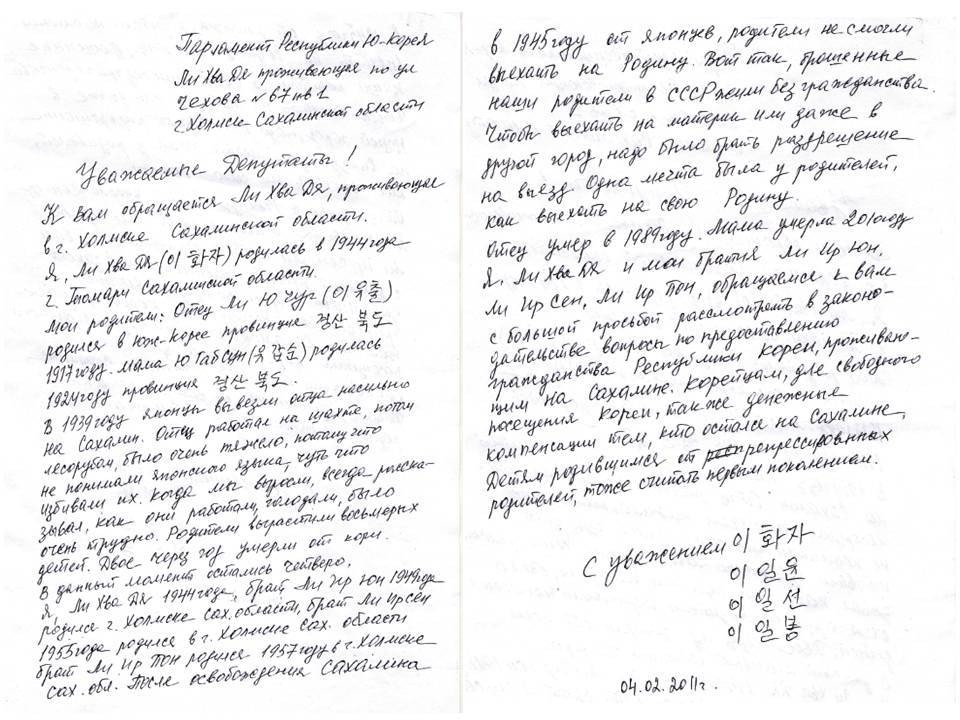 Парламент Республики Ю-Корея
Ли Хва Дя проживающая по ул
Чехова №67 кв 1
г. Холмске Сахалинской области
Уважаемые Депутаты!
К вам обращается Ли Хва Дя, проживающая
в г. Холмске Сахалинской области.
Я, Ли Хва Дя (이 화자) родилась в 1944 года
г. Томари Сахалинской области.
Мои родители: Отец Ли Ю Чур (이 유출)
родился в Юж-Корее провинция 경산 북도
1917 году. мама Ю Габ Сун (유 갑순) родилась
1924 году провинция 경산 북도.
В 1939 году японцы вывезли отца насильно
на Сахалин. Отец работал на шахте, потом
лесорубом, было очень тяжело, потому что
не понимали японского языка, чуть что
избивали их. Когда мы выросли, всегда расска-
зывал, как они работали, голодали, было
очень трудно. Родители вырастили восьмерых
детей. Двое через год умерли от кори.
В данный момент остались четверо.
Я, Ли Хва Дя 1944 года, брат Ли Ир Юн 1949 года
родился г. Холмске Сах. области, брат Ли Ир Сен
1955 года родился в г. Холмске Сах. области
брат Ли Ир Пон родился 1957 году в г. Холмске
Сах. обл. После освобождения Сахалина
в 1945 году от японцев, родители не смогли
выехать на Родину. Вот так, брошенные
наши родители в СССР жили без гражданства.
Чтобы выехать на материк или даже в
другой город, надо было брать раздрешение
на выезд. Одна мечта была у родителей,
как выехать на свою Родину.
Отец умер в 1989 году. Мама умерла 2010 году
Я, Ли Хва Дя и мои братья Ли Ир Юн,
Ли Ир Сен, Ли Ир Пон, обращаемся к вам
с большой просьбой рассмотреть в законо-
дательстве вопросы по предоставлению
гражданства Республики Корея, проживаю-
щим на Сахалине. Корейцам, для свободного
посещения Кореи, также денежные
компенсации тем, кто остался на Сахалине,
Детям родившимся от репрессированных
родителей, тоже считать первым поколением.
С уважением 이 화자
이 일윤
이 일선
이 일봉
04.02.2011г.